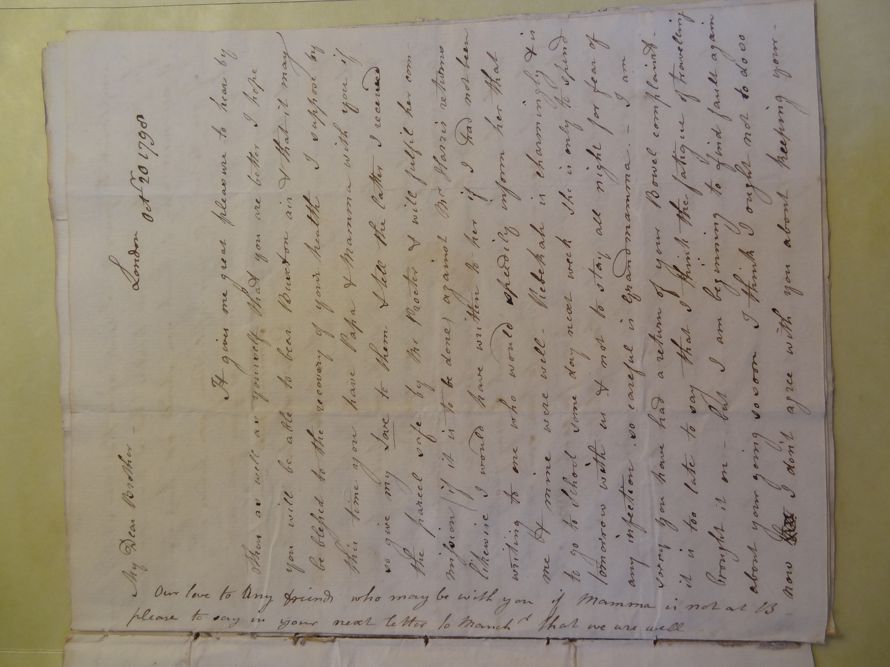 London
Octr 20 1798
My Dear Brother -
It gives me great pleasure to hear by
Thos as well as yourself that you are better I hope
you will be able to bear Buxton air & that it may
be blessed to the recovery of your health I suppose by
this time you have Papa & Mamma with you if
so give my Love to them & tell the latter I received
the parcel safe by Mr Procter & will fulfil her com-
mission (if it is to be done) against Mr Harris returns
likewise I would have written to her if I had not been
writing to one who would speedily inform her that
me & mine were well - Rebekah is charmingly & is
to go to School some day next week She is only to spend
tomorrow with us & not to stay all night for fear of
any infection so careful is Grandmamma - I am
sorry you have had a return of your Bowel complaint -
it is too late to say that I think the fatigue of travelling
brought it on - but I am beginning to find fault again
about your going so soon I think I ought not to do so
now I don't agree with you about keeping your -
Our love to any friends who may be with you if Mamma is not at B -
please to say in your next letter to Manchr that we are well